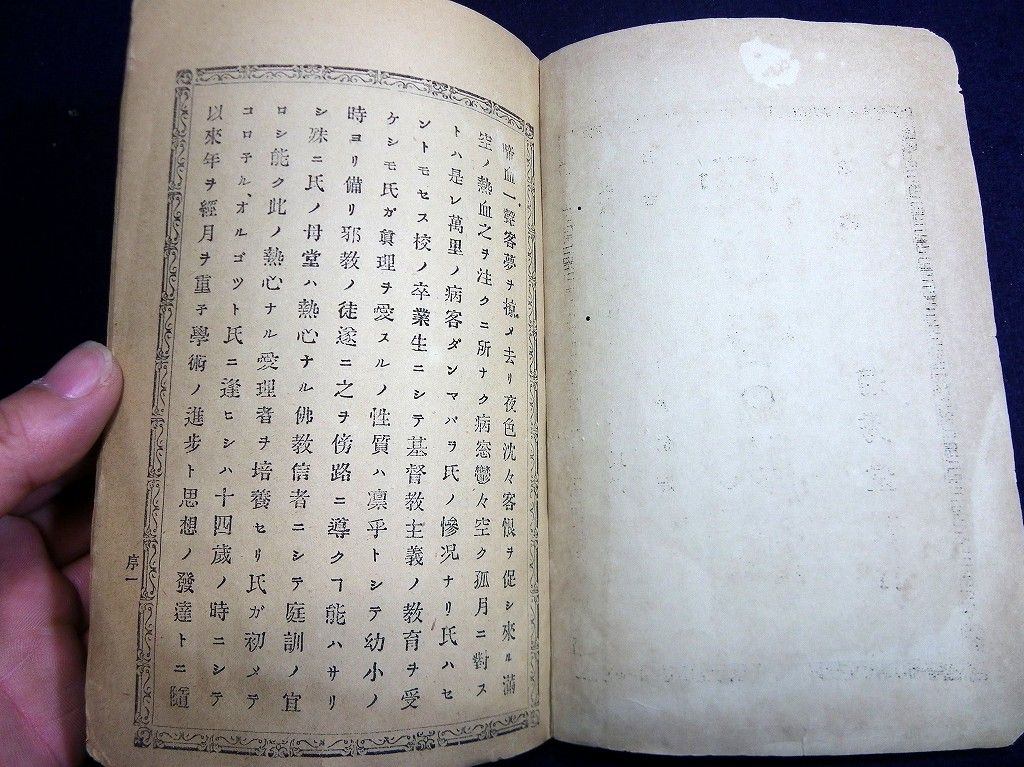 啼血一聲客夢ヲ攪メ去リ夜色沈々客恨ヲ促シ來ル滿
空ノ熱血之ヲ注クニ所ナク病窓鬱々空ク孤月ニ對ス
トハ是レ萬里ノ病客ダンマパラ氏ノ慘况ナリ氏ハセ
ントモセス校ノ卒業生ニシテ基督教主義ノ教育ヲ受
ケシモ氏ガ眞理ヲ愛スルノ性質ハ凛乎トシテ幼小ノ
時ヨリ備リ邪教ノ徒遂ニ之ヲ傍路ニ導クヿ能ハサリ
シ殊ニ氏ノ母堂ハ熱心ナル佛教信者ニシテ庭訓ノ宜
ロシ能ク此ノ熱心ナル愛理者ヲ培養セリ氏ガ初メテ
コロ子ル、オルゴット氏ニ逢ヒシハ十四歲ノ時ニシテ
以來年ヲ經月ヲ重子學術ノ進步ト思想ノ發達トニ隨
序一